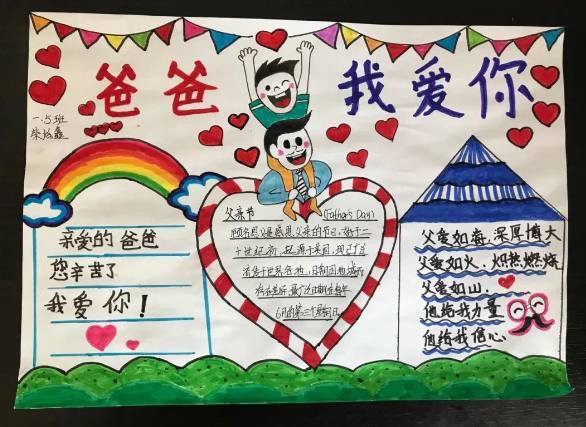 爸爸 我爱你
一.5班
亲爱的爸爸
您辛苦了
我爱你！
父亲节 (Father's Day)
顾名思义是感恩父亲的节日,始于二
十世纪初,起源于美国,现已广泛
流传于世界各地,日期因地域而
存在差异,最广泛日期在每年
6月的第三个星期日
父爱如海,深厚博大
父爱如火,炽热燃烧
父爱如山.
他给我力量
他给我信心